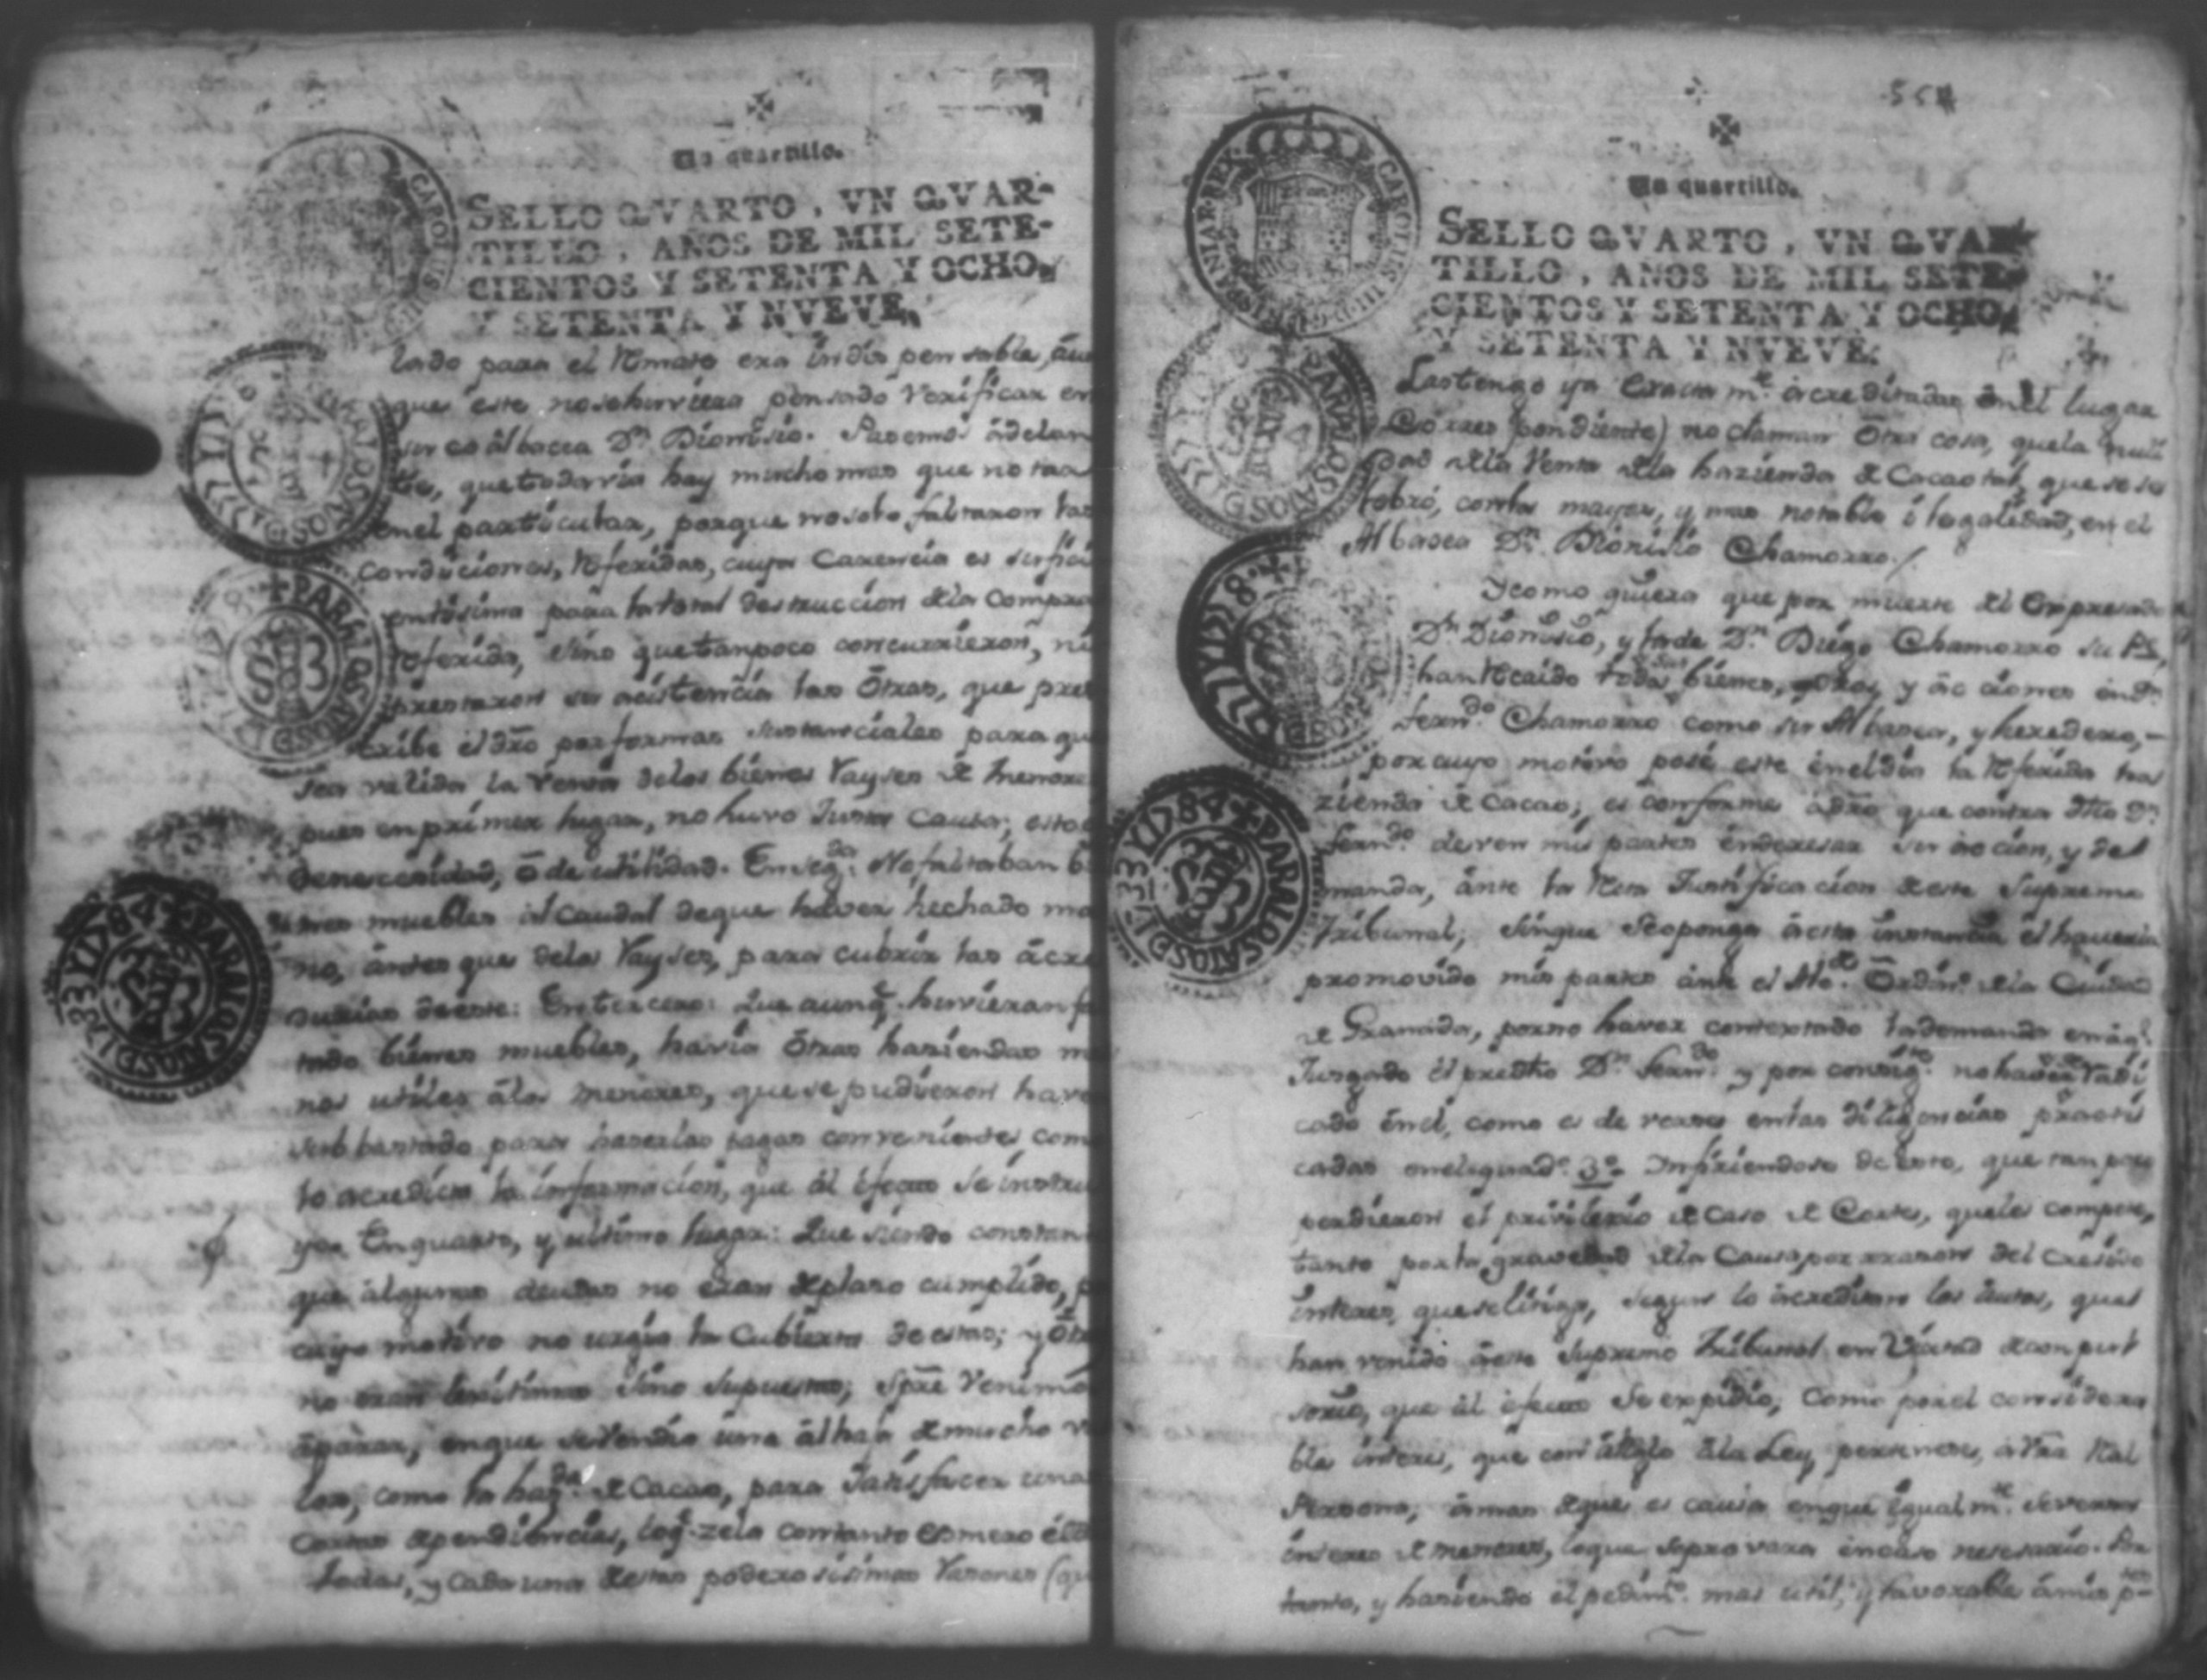 Un quartillo.
SELLO QVARTO, VN QVAR-
TILLO, AÑOS DE MIL SETE-
CIENTOS Y SETENTA Y OCHO,
Y SETENTA Y NVEVE.
lado para el Remate era indispensable, aun
que este no se huviera pensado verificar en
su co albacea Dn. Dionisio. Pasemos adelan
te, que todavia hay mucho mas que notar
en el particular, porque no solo faltaron las
condiciones, Referidas, cuya Carencia es sufici
entisima para la total destruccion dela Compra
Referida, sino que tanpoco concurrieron, ni
prestaron su asistencia las Otras, que pres
cribe el dro por formas sustanciales para que
sea valida la Venta delos bienes Rayses de menores
pues en primer lugar, no huvo Justa Causa, esto
de necesidad, ō de utilidad. En seg.da No faltaban b
nes muebles al caudal de que haver hechado ma
no, ántes que delos Rayses, para cubrir las acre
durias de este: En tercero: Que aunq. huvieran fa
tado bienes muebles, havia Otras haziendas me
nos utiles álos menores, que se pudieron haver
subhastado para hacerlas pagas convenientes, como
lo acredita la informacion, que ál efecto se instru
yó. En quarto, y ultimo lugar: Que siendo constan
que algunas deudas no eran de plazo cumplido, p
cuyo motivo no urgia la Cubierta de estas; y Otr
no eran lexitimas sino supuestas; Spre Venimos
áparar, en que se vendio una alhaja de mucho v
lor, como la haz.da de Cacao, para Satisfacer unas
Cortas dependiencias, loq. zela con tanto Esmero el
todas, y cada una de estas poderosisimas Razones (qu
Un quartillo.
SELLO QVARTO, VN QVAR
TILLO, AÑOS DE MIL SETE
CIENTOS Y SETENTA Y OCHO,
Y SETENTA Y NVEVE.
Las tengo ya Exactam.te acreditadas en el lugar
Correspondiente) no claman Otra cosa, que la nuli
dad dela Venta dela hazienda de Cacaotal, que se se
lebró, con la mayor, y mas notable ilegalidad, en el
Albasea Dn. Dionisio Chamorro./
Y como quiera que por muerte del Expresado
Dn. Dionisio, y la de Dn. Diego Chamorro su P.e,
han Recaido todos sus bienes, y acciones en Dn.
Fern.do Chamorro como su Albasea, y heredero,
por cuyo motivo posé este en el dia la Referida ha
zienda de Cacao; es conforme á dro que contra dho Dn.
Fern.do deven mis partes enderesar su accion, y de
manda, ante la Recta Justificacion de este Supremo
Tribunal; sin que se oponga á esta instancia el haverla
promovido mis partes ante el Alc.e Ordin.o dela Ciudad
de Granada, por no haver contextado la demanda en aq.l
Jusgado el predho Dn. Fern.do y por consig.te no haverse radi
cado en el, como es de verse en las diligencias practi
cadas en el quad.o 3.o Infiriendose de esto, que tan poco
perdieron el privilexio de Caso de Corte, que les compete,
tanto por la gravedad dela Causa por rrazon del Cresido
interes, que se litiga, segun lo acreditan los autos, que
han venido á este Supremo Tribunal en Virtud de conpul
sorio, que al efecto se expidio; Como por el considera
ble interes, que con arreglo ala Ley pertenese, á Vra Real
Persona; á mas de que es causa en que igual m.te se versa
interes de menores, lo que se provara en caso nesesario. Por
tanto, y haciendo el pedim.to mas util, y favorable á mis p.tes